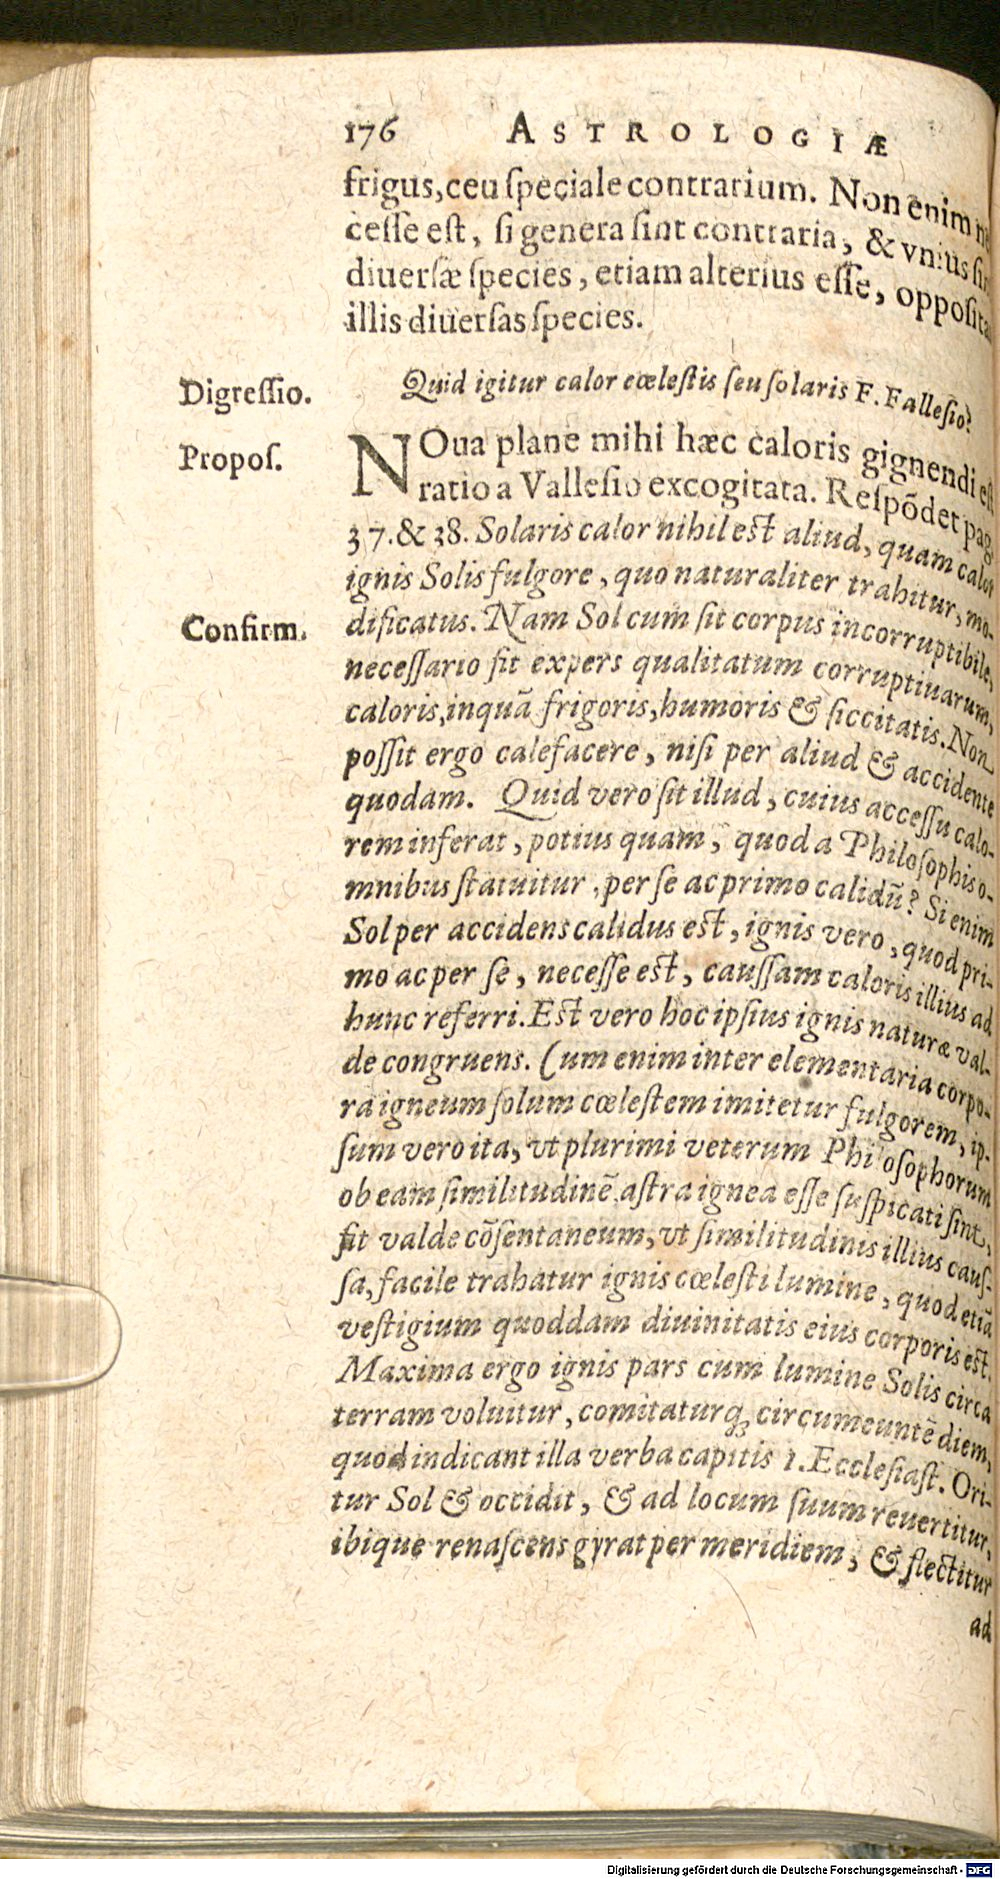 176 ASTROLOGIÆ
frigus, ceu speciale contrarium. Non enim ne
cesse est, si genera sint contraria, & vnius sin
diuersæ species, etiam alterius esse, opposita
illis diuersas species.
Digressio.
Quid igitur calor cœlestis seu solaris F. Fallesio?
Propos.
NOua plane mihi hæc caloris gignendi est
ratio a Vallesio excogitata. Respõdet pag
37. & 38. Solaris calor nihil est aliud, quam calor
ignis Solis fulgore, quo naturaliter trahitur, mo-
Confirm.
dificatus. Nam Sol cum sit corpus incorruptibile,
necessario fit expers qualitatum corruptiuarum,
caloris, inquã frigoris, humoris & siccitatis. Non
possit ergo calefacere, nisi per aliud & accidente
quodam. Quid vero sit illud, cuius accessu calo-
rem inferat, potius quam, quod a Philosophis o-
mnibus statuitur, per se ac primo calidũ? Si enim
Sol per accidens calidus est, ignis vero, quod pri-
mo ac per se, necesse est, caussam caloris illius ad
hunc referri. Est vero hoc ipsius ignis naturæ val-
de congruens. Cum enim inter elementaria corpo-
ra igneum solum cœlestem imitetur fulgorem, ip-
sum vero ita, vt plurimi veterum Philosophorum
ob eam similitudinẽ astra ignea esse suspicati sint,
fit valde cõsentaneum, vt similitudinis illius caus-
sa, facile trahatur ignis cœlesti lumine, quod etiã
vestigium quoddam diuinitatis eius corporis est.
Maxima ergo ignis pars cum lumine Solis circa
terram voluitur, comitaturq; circumeuntẽ diem,
quod indicant illa verba capitis 1. Ecclesiast. Ori-
tur Sol & occidit, & ad locum suum reuertitur,
ibique renascens gyrat per meridiem, & flectitur
ad
Digitalisierung gefördert durch die Deutsche Forschungsgemeinschaft - DFG